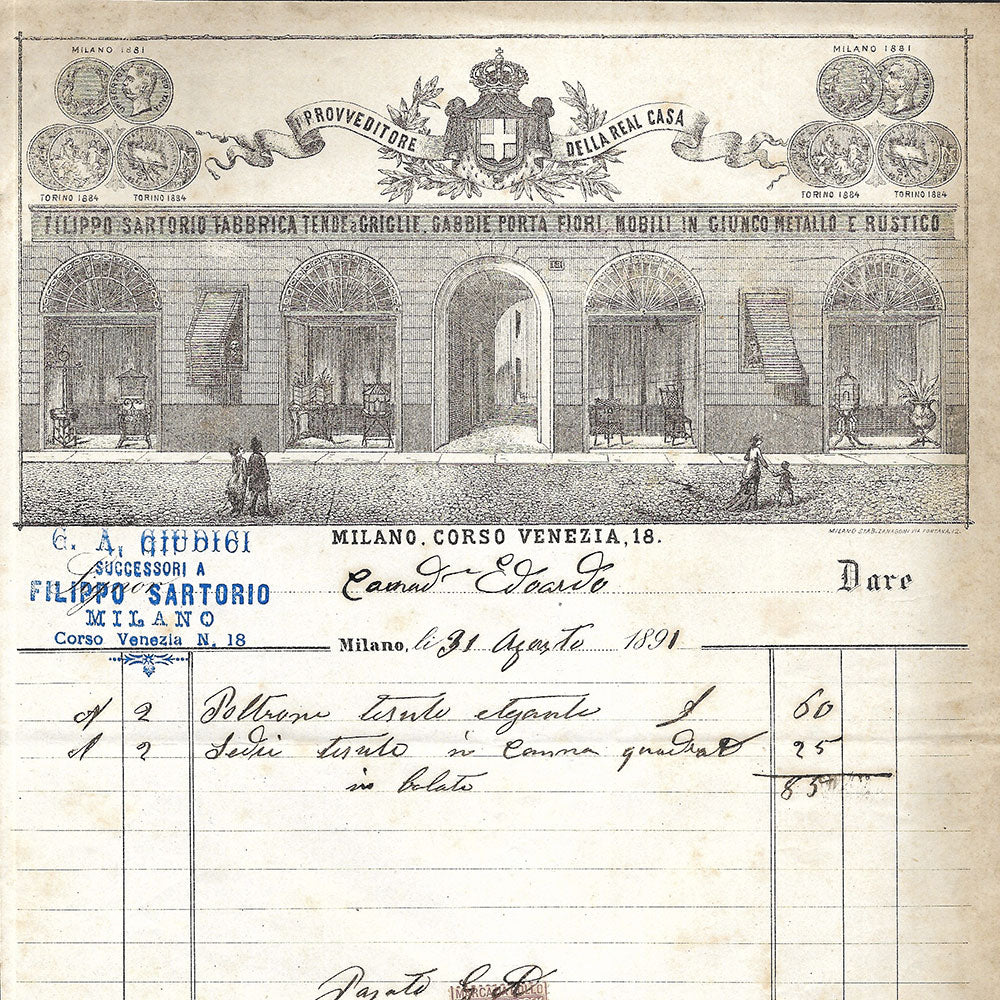 MILANO 1881
MILANO 1881
PROVVEDITORE
DELLA REAL CASA
TORINO 1884 TORINO 1884
TORINO 1884 TORINO 1884
FILIPPO SARTORIO FABBRICA TENDE E GRIGLIE, GABBIE PORTA FIORI, MOBILI IN GIUNCO METALLO E RUSTICO
MILANO. CORSO VENEZIA, 18.
G. A. GIUDICI
SUCCESSORI A
FILIPPO SARTORIO
MILANO
Corso Venezia N. 18
Signor
Edoardo Dare
Milano, li 31 Agosto 1891
N 2 Poltrone tesute elegante 60
2 Sedie tesute in canna 25
in 85
Pagato
MARCA DA BOLLO